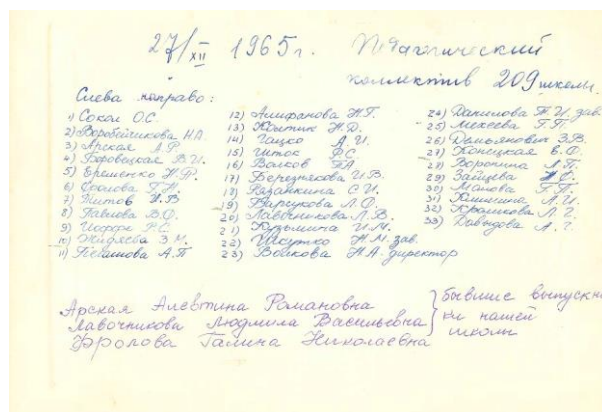 27/XII 1965г. Педагогический
коллектив 209 школы.
Слева направо:
1) Сокол О.С.
2) Воробейчикова Н.А.
3) Арская А.Р.
4) Боровацкая В.И.
5) Ерёменко Н.П.
6) Фролова Г.Н.
7) Титов И.В
8) Павлова В.Ф.
9) Иоффе Р.С
10) З.М.
11) А.П
12) Алифанова Н.Г.
13) Костик Н.Д.
14) Гацко А.И.
15) Ф.С
16) Волков
17) Березнякова И.В.
18) Казанкина С.И.
19) Варикова Л.Ф.
20) Лавочникова Л.В.
21) Кузьмина И.М.
22) Шкутко Н.М. зав.
23) Войкова Н.А. директор
24) Данилова зав.
25) Мехеева Г.П.
26) Демьянович З.В.
27) Конецкая Е.Ф.
28) Воронина Л.П.
29) Зайцева
30) Манова Г.П.
31) Климина Л.И.
32) Крашкова Л.Г.
33) Давыдова А.Г.
Арская Алевтина Романовна
Лавочникова Людмила Васильевна } бывшие выпускни
Фролова Галина Николаевна ки нашей
школы